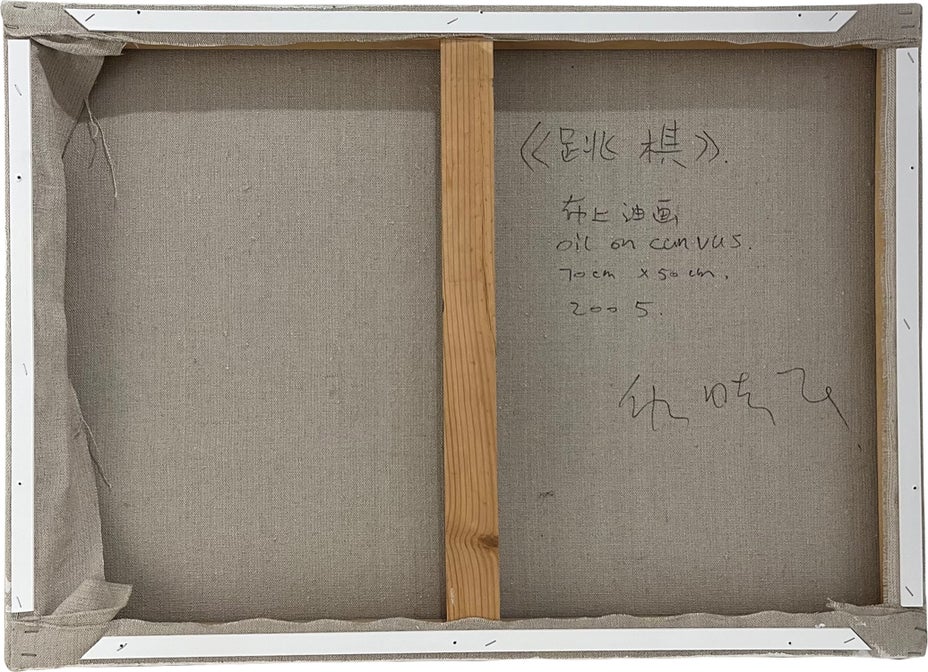 《跳棋》.
布上油画
oil on canvas.
70cm x 50cm.
2005.
仇晓飞